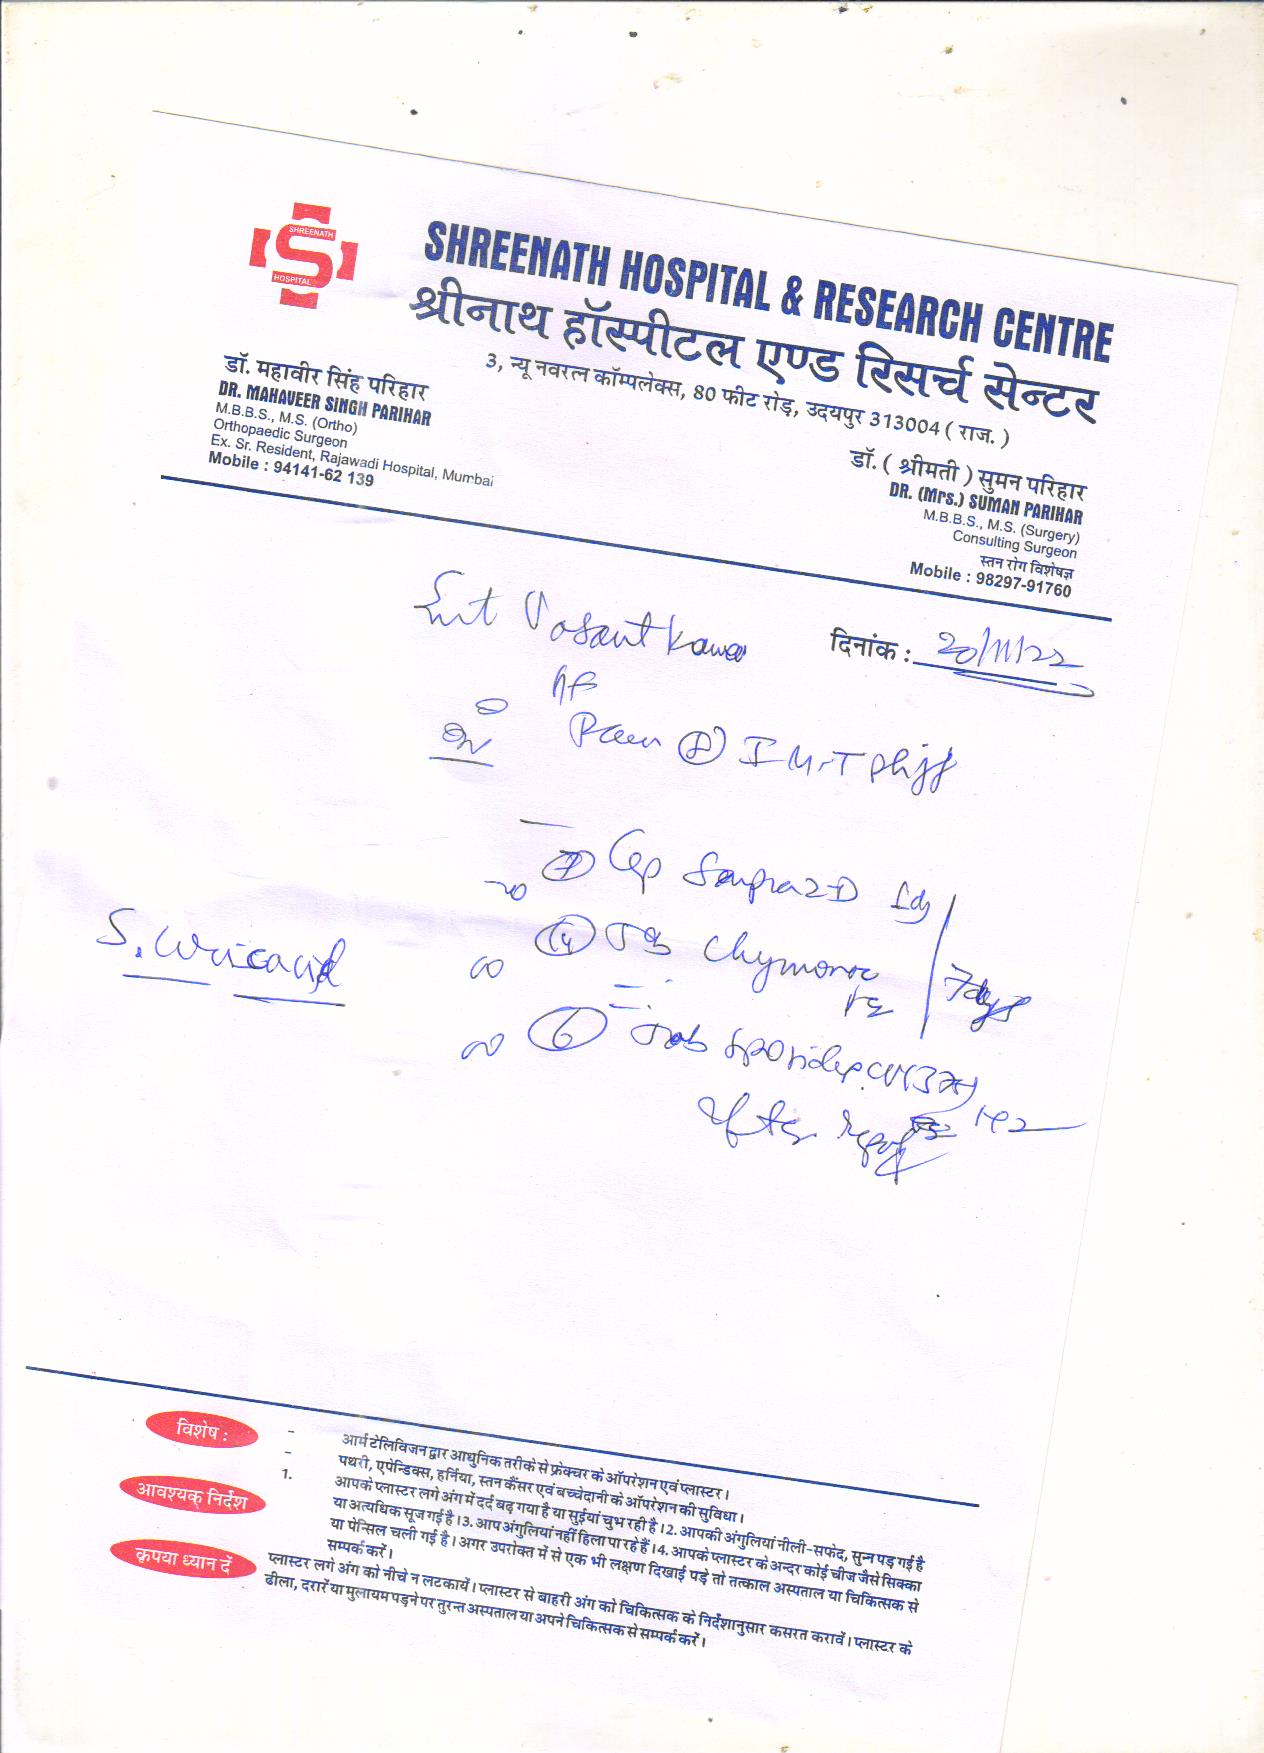 SHREENATH
HOSPITAL
SHREENATH HOSPITAL & RESEARCH CENTRE
श्रीनाथ हॉस्पीटल एण्ड रिसर्च सेन्टर
3, न्यू नवरत्न कॉम्पलेक्स, 80 फीट रोड़, उदयपुर 313004 ( राज. )
डॉ. महावीर सिंह परिहार
DR. MAHAVEER SINGH PARIHAR
M.B.B.S., M.S. (Ortho)
Orthopaedic Surgeon
Ex. Sr. Resident, Rajawadi Hospital, Mumbai
Mobile : 94141-62 139
डॉ. ( श्रीमती ) सुमन परिहार
DR. (Mrs.) SUMAN PARIHAR
M.B.B.S., M.S. (Surgery)
Consulting Surgeon
स्तन रोग विशेषज्ञ
Mobile : 98297-91760
Vasant
दिनांक : 20/11/22
Pain
Cap
Chymoral
7 days
S. Uric acid
Tab
After
विशेष :
- आर्म टेलिविजन द्वार आधुनिक तरीके से फ्रेक्चर के ऑपरेशन एवं प्लास्टर ।
- पथरी, एपेन्डिक्स, हर्निया, स्तन कैंसर एवं बच्चेदानी के ऑपरेशन की सुविधा ।
आवश्यक् निर्देश
1. आपके प्लास्टर लगे अंग में दर्द बढ़ गया है या सुईयां चुभ रही है । 2. आपकी अंगुलियां नीली-सफेद, सुन्न पड़ गई है
या अत्यधिक सूज गई है । 3. आप अंगुलियां नहीं हिला पा रहे हैं । 4. आपके प्लास्टर के अन्दर कोई चीज जैसे सिक्का
या पेन्सिल चली गई है । अगर उपरोक्त में से एक भी लक्षण दिखाई पड़े तो तत्काल अस्पताल या चिकित्सक से
सम्पर्क करें ।
कृपया ध्यान दें
प्लास्टर लगे अंग को नीचे न लटकायें । प्लास्टर से बाहरी अंग को चिकित्सक के निर्देशानुसार कसरत करावें । प्लास्टर के
ढीला, दरारें या मुलायम पड़ने पर तुरन्त अस्पताल या अपने चिकित्सक से सम्पर्क करें ।